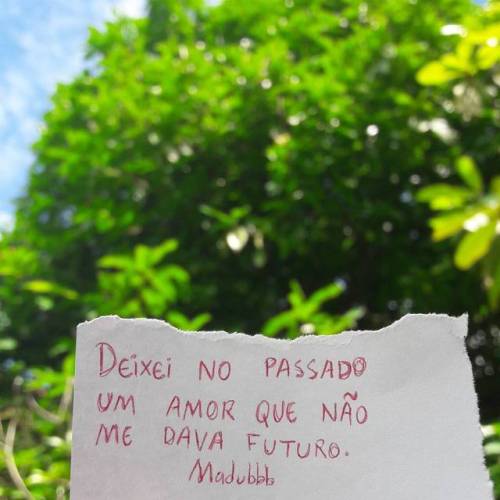 Deixei NO PASSADO
UM AMOR QUE NÃO
ME DAVA FUTURO.
Madubbb